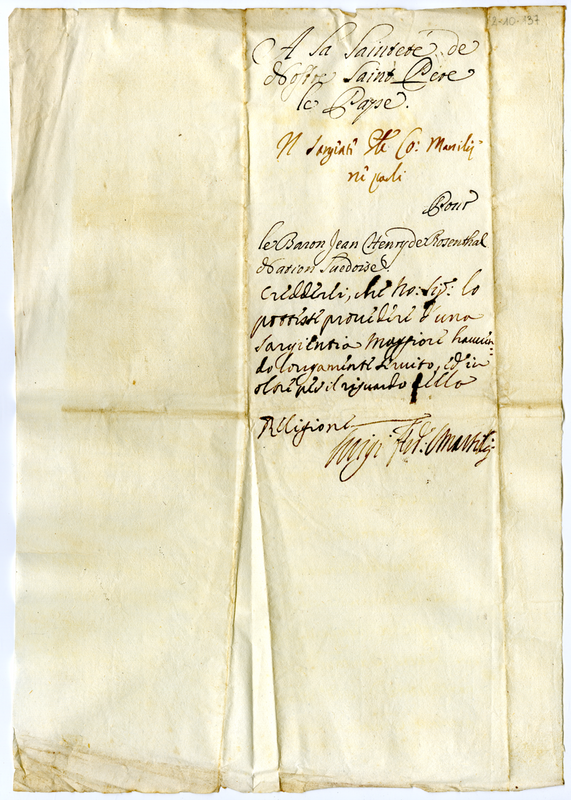 2-10-137
A Sa Sainteté de
Nostre Saint Pere
le Pape.
Al Co: Marsilij
ne parli
Pour
le Baron Jean Henry de Rosenthal
Nation Suedoise.
Crederei, che No: Sig: lo
potesse provedere d'una
Sargientia Maggiore haven-
do longamente servito, ed in
oltre per il riguardo della
Religione
Luigi Fer: Marsilij